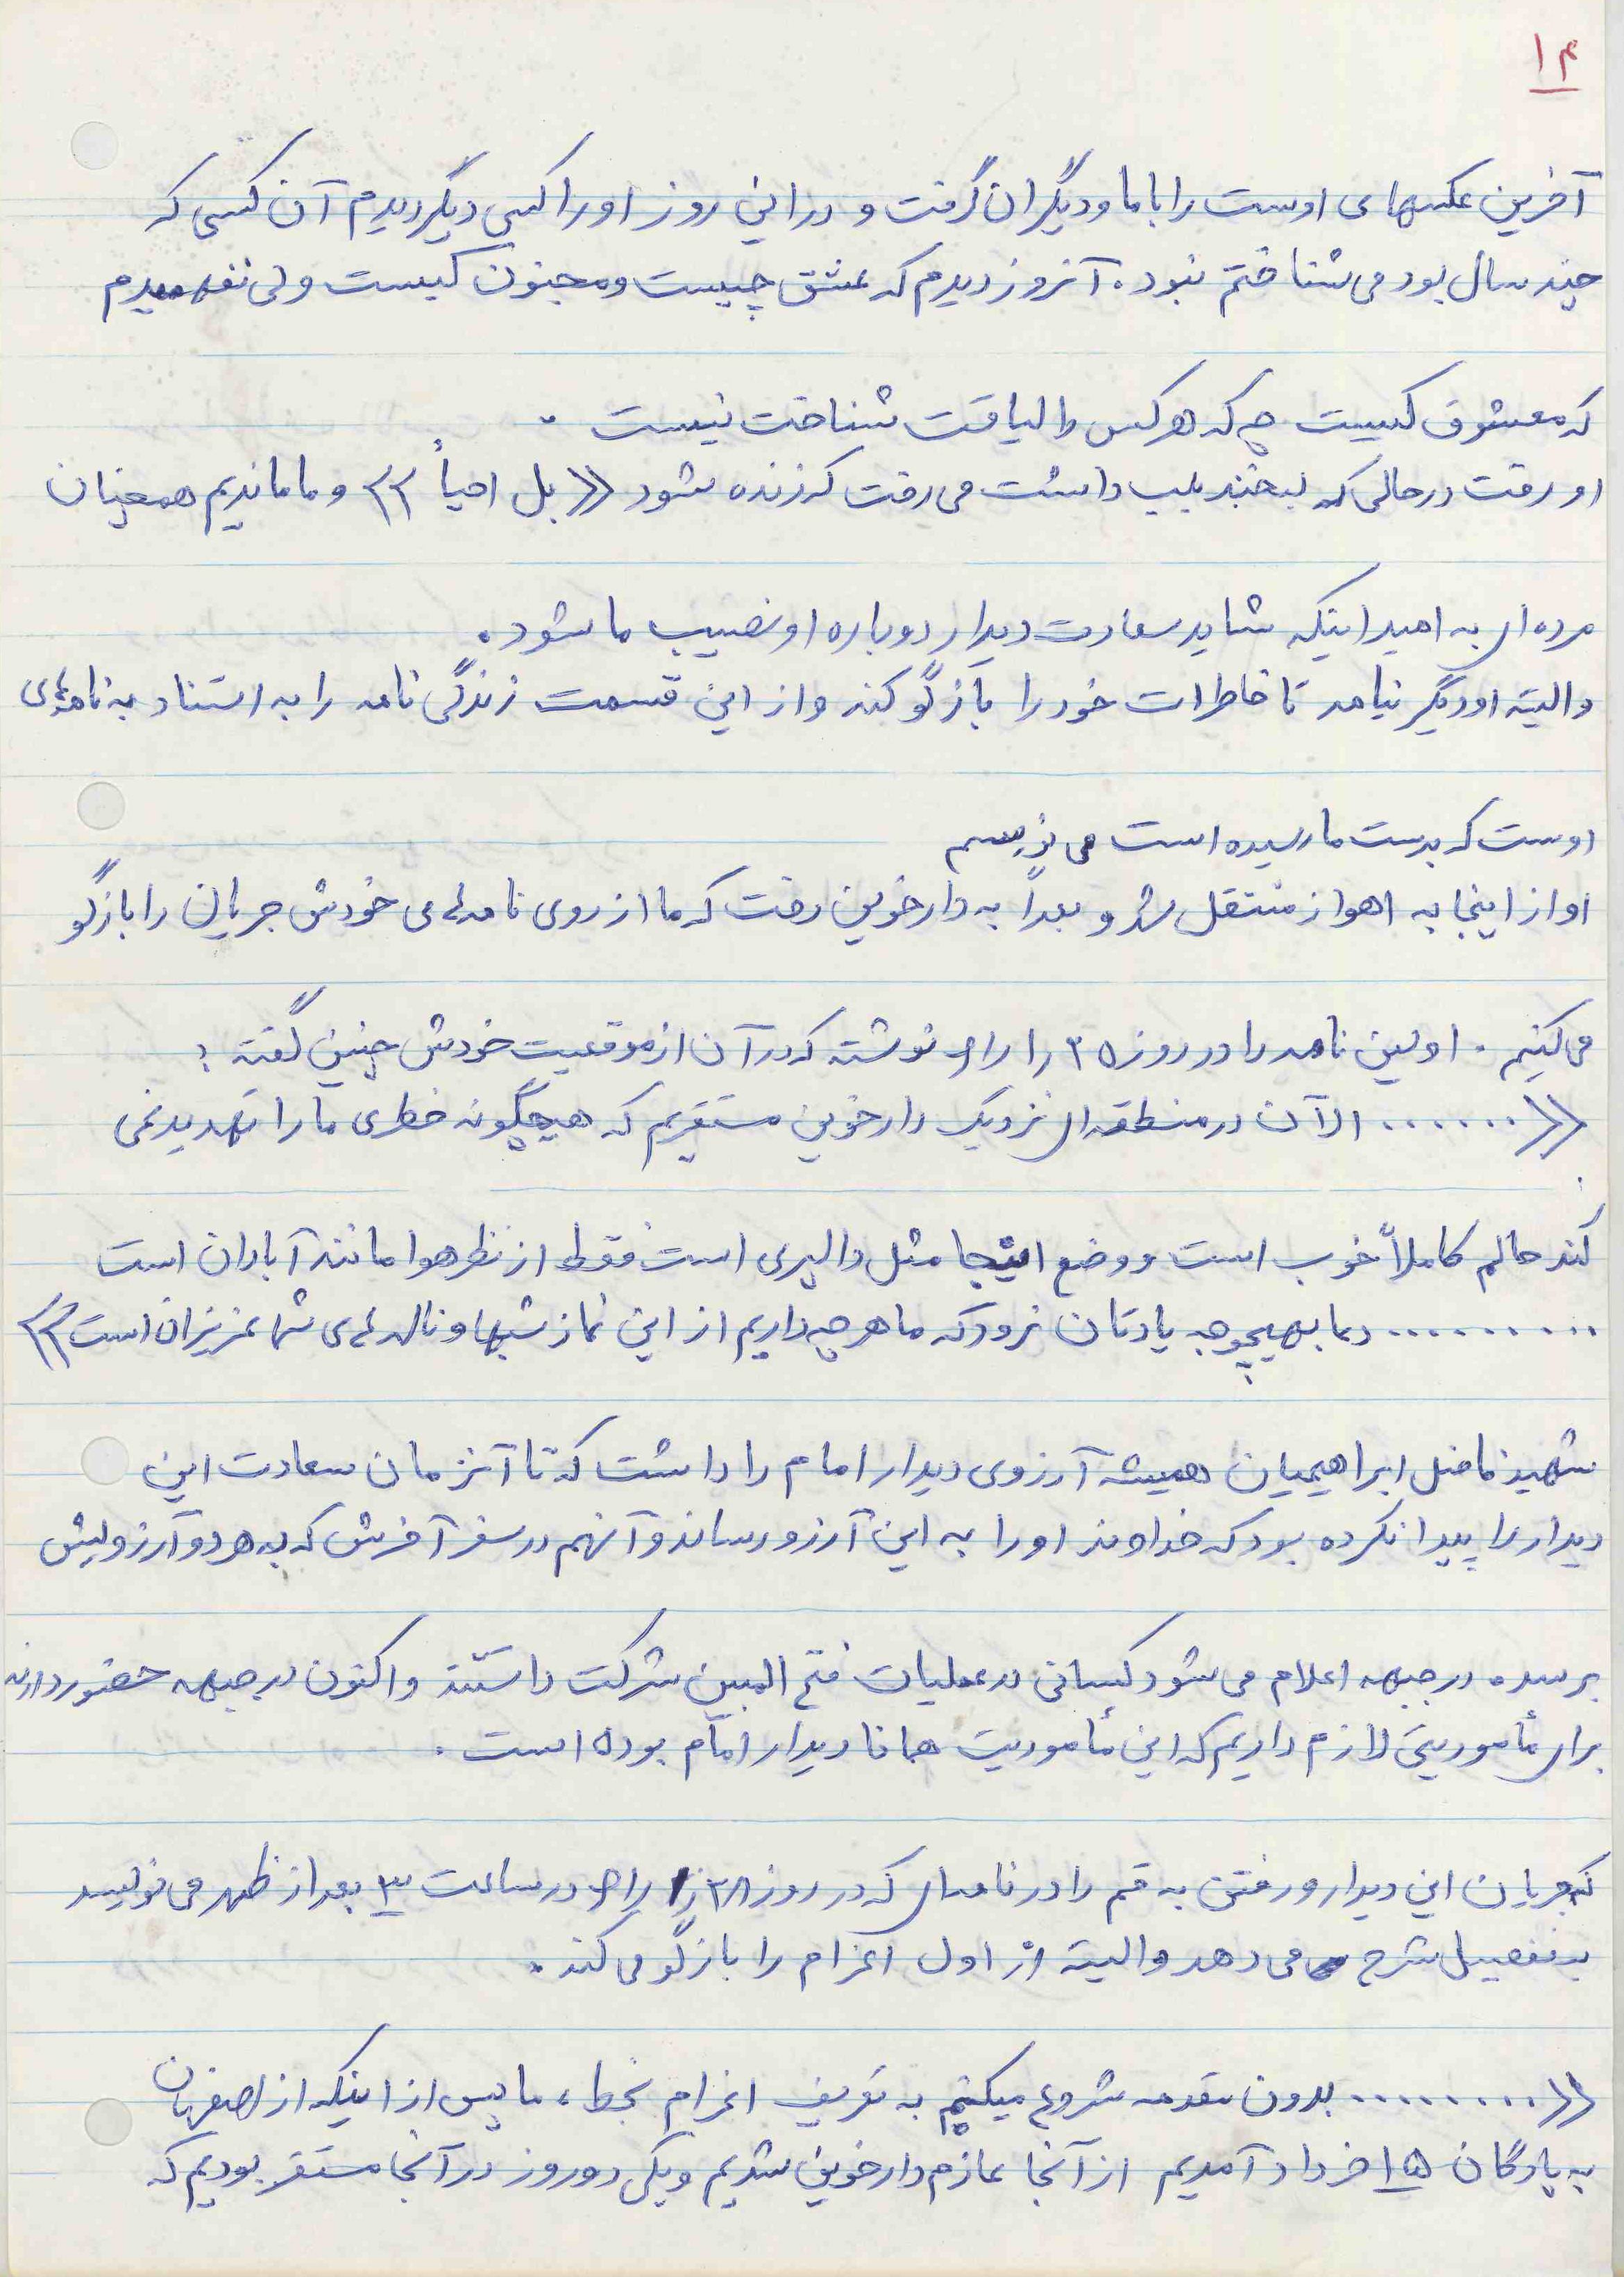 ۱۴
آخرین عکسهای اوست را با ما و دیگران گرفت و در این روز او را کسی دیگر دیدم آن کسی که
چند سال بود می شناختم نبود. آنروز دیدم که عشق چیست و مجنون کیست ولی نفهمیدم
که معشوق کیست چه که هر کس را لیاقت شناخت نیست.
او رفت در حالی که لبخند بلب داشت می رفت که زنده شود «بل احیاً» و ما ماندیم همچنان
مرده ای به امید اینکه شاید سعادت دیدار دوباره او نصیب ما شود.
و البته او دیگر نیامد تا خاطرات خود را بازگو کند و از این قسمت زندگی نامه را به استناد به نامه‌های
اوست که بدست ما رسیده است می نویسم
او از اینجا به اهواز منتقل شد و بعداً به دارخوین رفت که ما از روی نامه‌های خودش جریان را بازگو
می کنیم. اولین نامه را در روز ۲۵/۱/۶۱ نوشته که در آن از موقعیت خودش چنین گفته:
«....... الآن در منطقه ای نزدیک دارخوین مستقریم که هیچگونه خطری ما را تهدید نمی
کند حالم کاملاً خوب است و وضع اینجا مثل دالپری است فقط از نظر هوا مانند آبادان است
......... دعا بهیچوجه یادتان نرود که ما هر چه داریم از این نماز شبها و ناله های شما عزیزان است»
شهید فاضل ابراهیمیان همیشه آرزوی دیدار امام را داشت که تا آنزمان سعادت این
دیدار را پیدا نکرده بود که خداوند او را به این آرزو رساند و آنهم در سفر آخرش که به هر دو آرزویش
برسد. در جبهه اعلام می شود کسانی در عملیات فتح المبین شرکت داشتند و اکنون در جبهه حضور دارند
برای مأموریتی لازم داریم که این مأموریت همانا دیدار امام بوده است.
که جریان این دیدار و رفتن به قم را در نامه ای که در روز ۲۸/۱/۶۱ در ساعت ۳ بعد از ظهر می نویسد
به تفصیل شرح می دهد و البته از اول اعزام را بازگو می کند.
«......... بدون مقدمه شروع میکنم به تعریف اعزام بخط، ما پس از اینکه از اصفهان
به پادگان ۱۵ خرداد آمدیم از آنجا عازم دارخوین شدیم و یکی دو روز در آنجا مستقر بودیم که